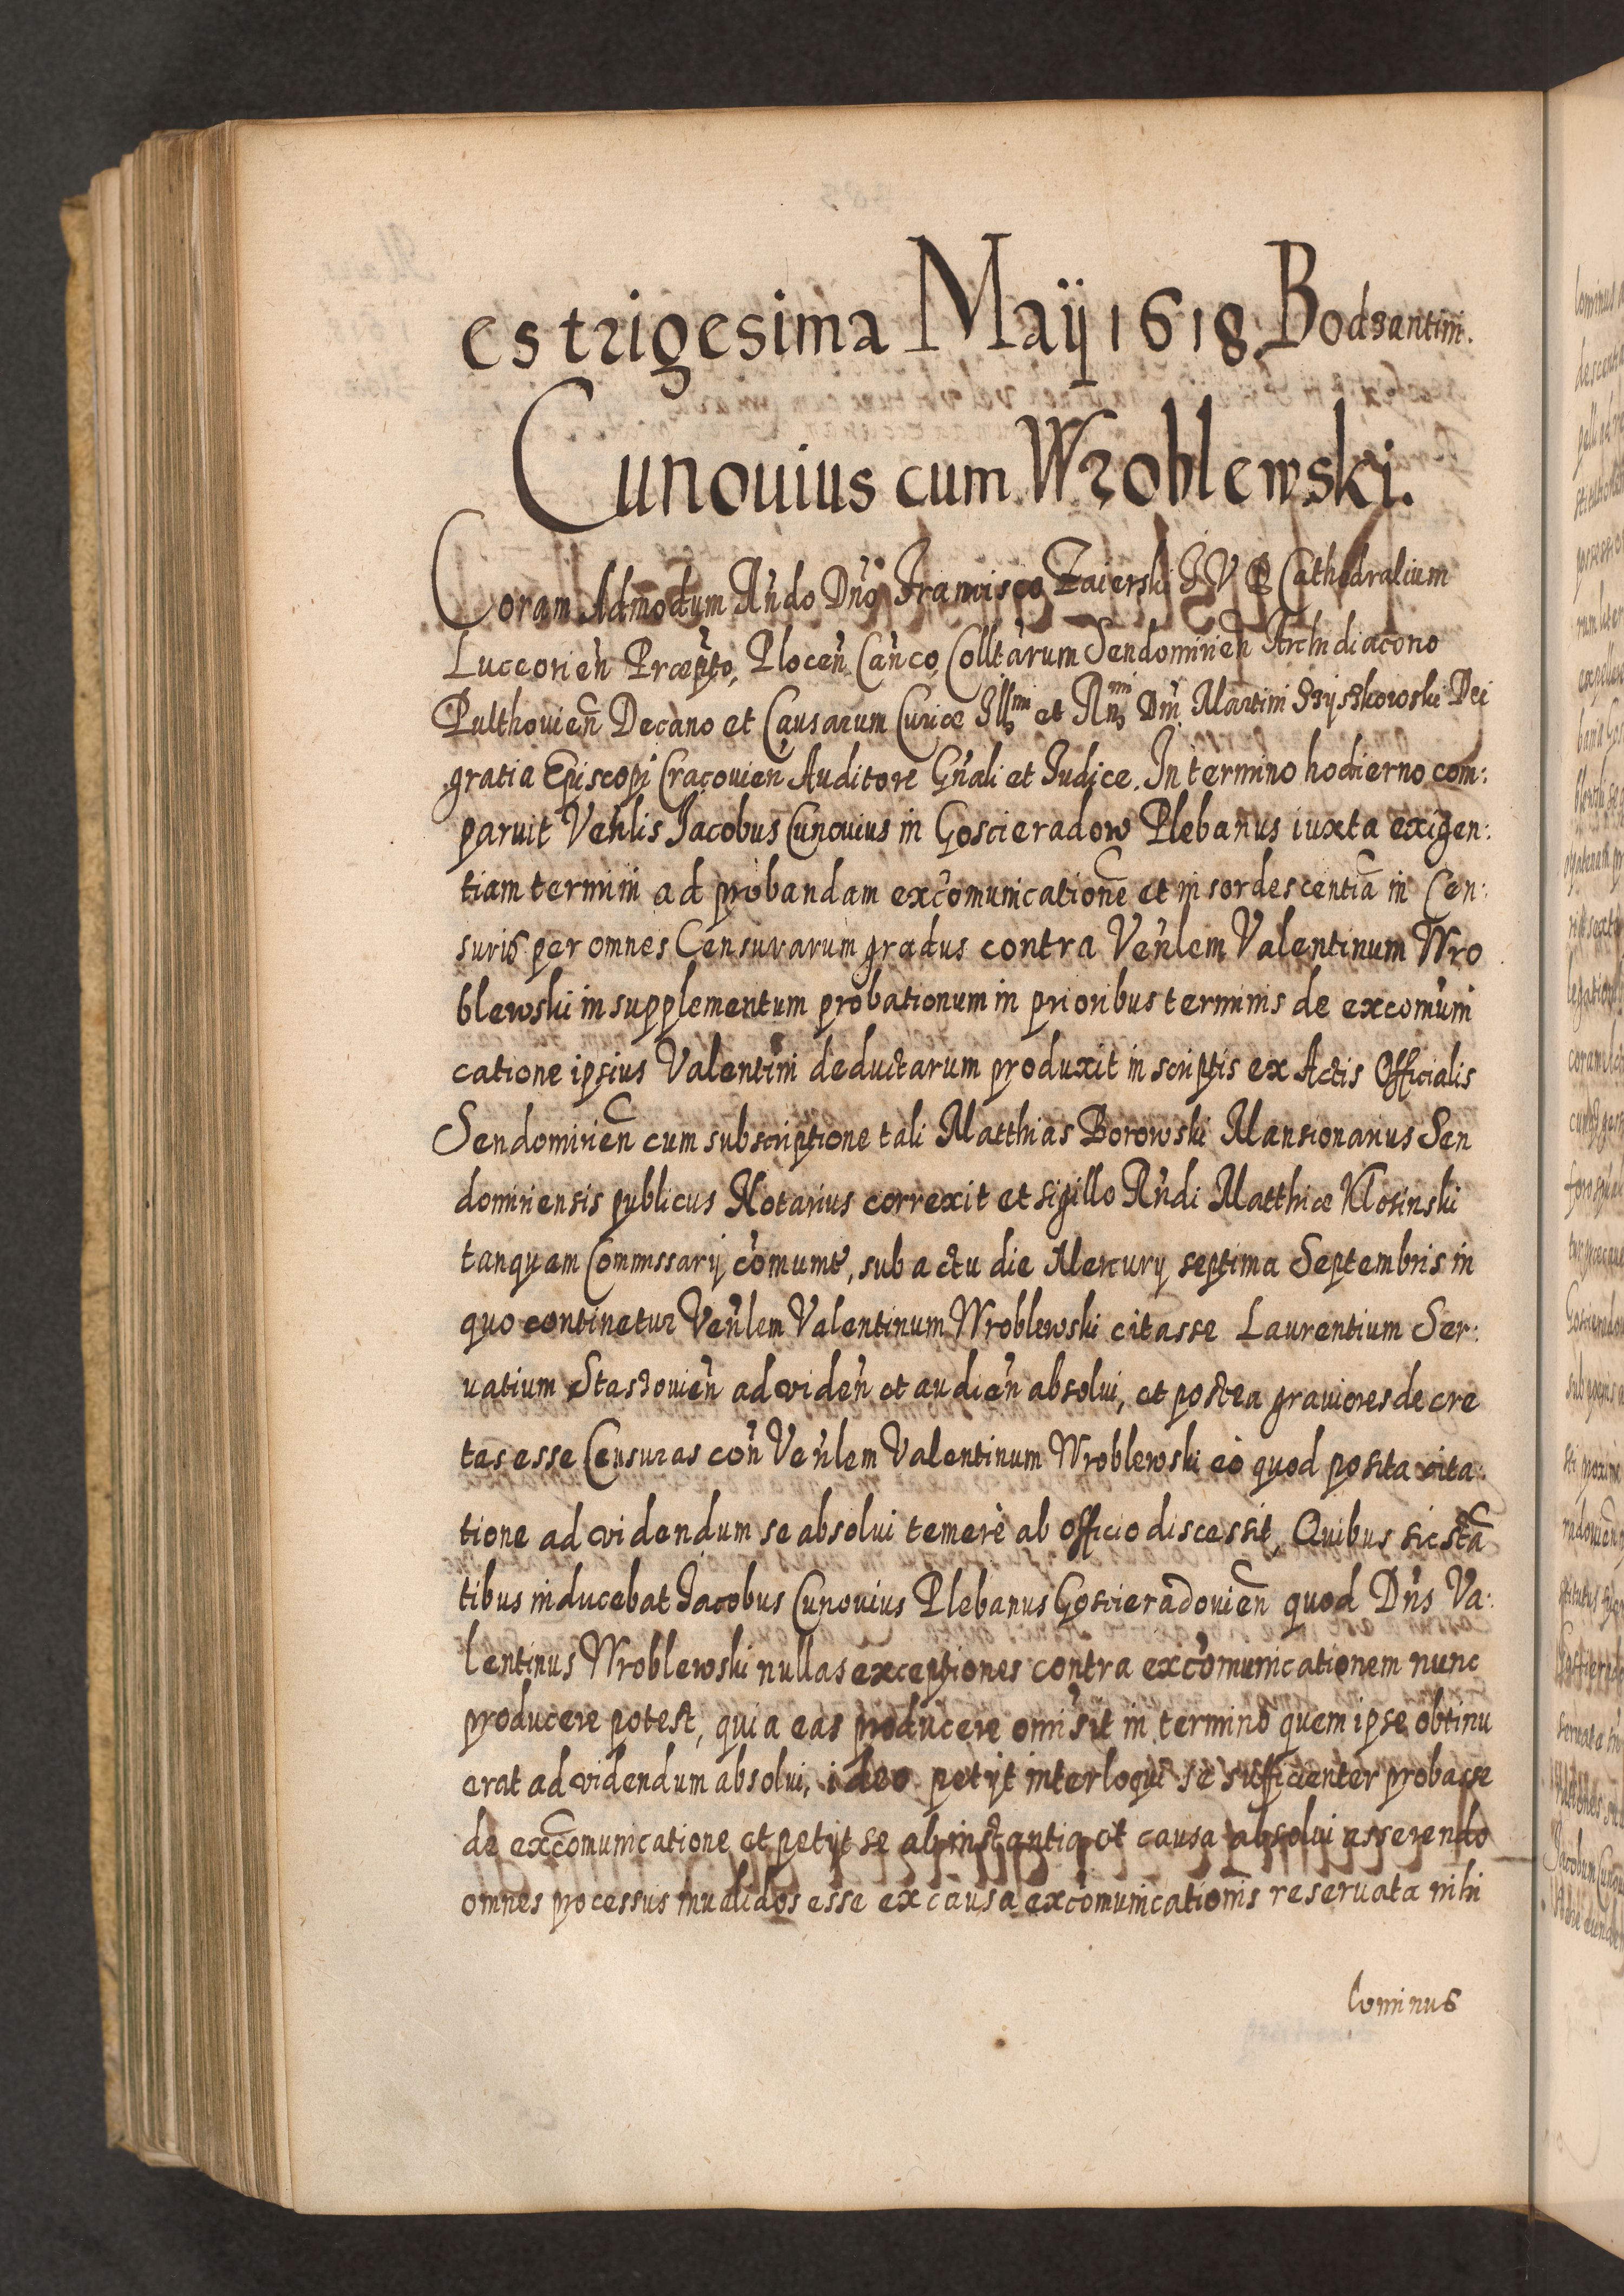 es trigesima Maij 1618 Bodzantini.
Cunouius cum Wroblewski.
Coram Admodum Rńdo Dńo Francisco Zaierski I V D Cathedralium
Luceorień Præpto, Plocen Canco, Colltarum Sendomirień Archidiacono
Pulthouień Decano et Causarum Curiæ Illmi et Rmi Dni Martini Szyszkowski Dei
gratia Episcopi Cracouien Auditore Gńali et Iudice. In termino hodierno com:
paruit Veńlis Iacobus Cunouius in Goscieradow Plebanus iuxta exigen:
tiam termini ad probandam excomunicationē et insordescentiā in Cen:
suris per omnes Censurarum gradus contra Veńlem Valentinum Wro
blewski in supplementum probationum in prioribus terminis de excomuni
catione ipsius Valentini deductarum produxit in scriptis ex Actis Officialis
Sendomirień cum subscriptione tali Matthias Borowski Mansionarius Sen
domiriensis publicus Notarius correxit et sigillo Rńdi Matthiæ Klosinski
tanquam Commissarij comunit, sub actu die Mercurij septima Septembris in
quo continetur Veńlem Valentinum Wroblewski citasse Laurentium Ser:
uatium Staszouień ad videń et audień absolui, et postea grauiores decre
tas esse Censuras coń Veńlem Valentinum Wroblewski eò quod posita cita:
tione ad videndum se absolui temerè ab officio discessit, Quibus sic stā
tibus inducebat Iacobus Cunouius Plebanus Goscieradouień quod Dńs Va:
lentinus Wroblewski nullas exceptiones contra excomunicationem nunc
producere potest, quia eas producere omisit in termino quem ipse obtinu
erat ad videndum absolui, ideo petijt interloqui se sufficienter probasse
de excomunicatione et petijt se ab instantia et causa absolui asserendo
omnes processus inualidos esse ex causa excomunicationis reseruata nihi
lominus